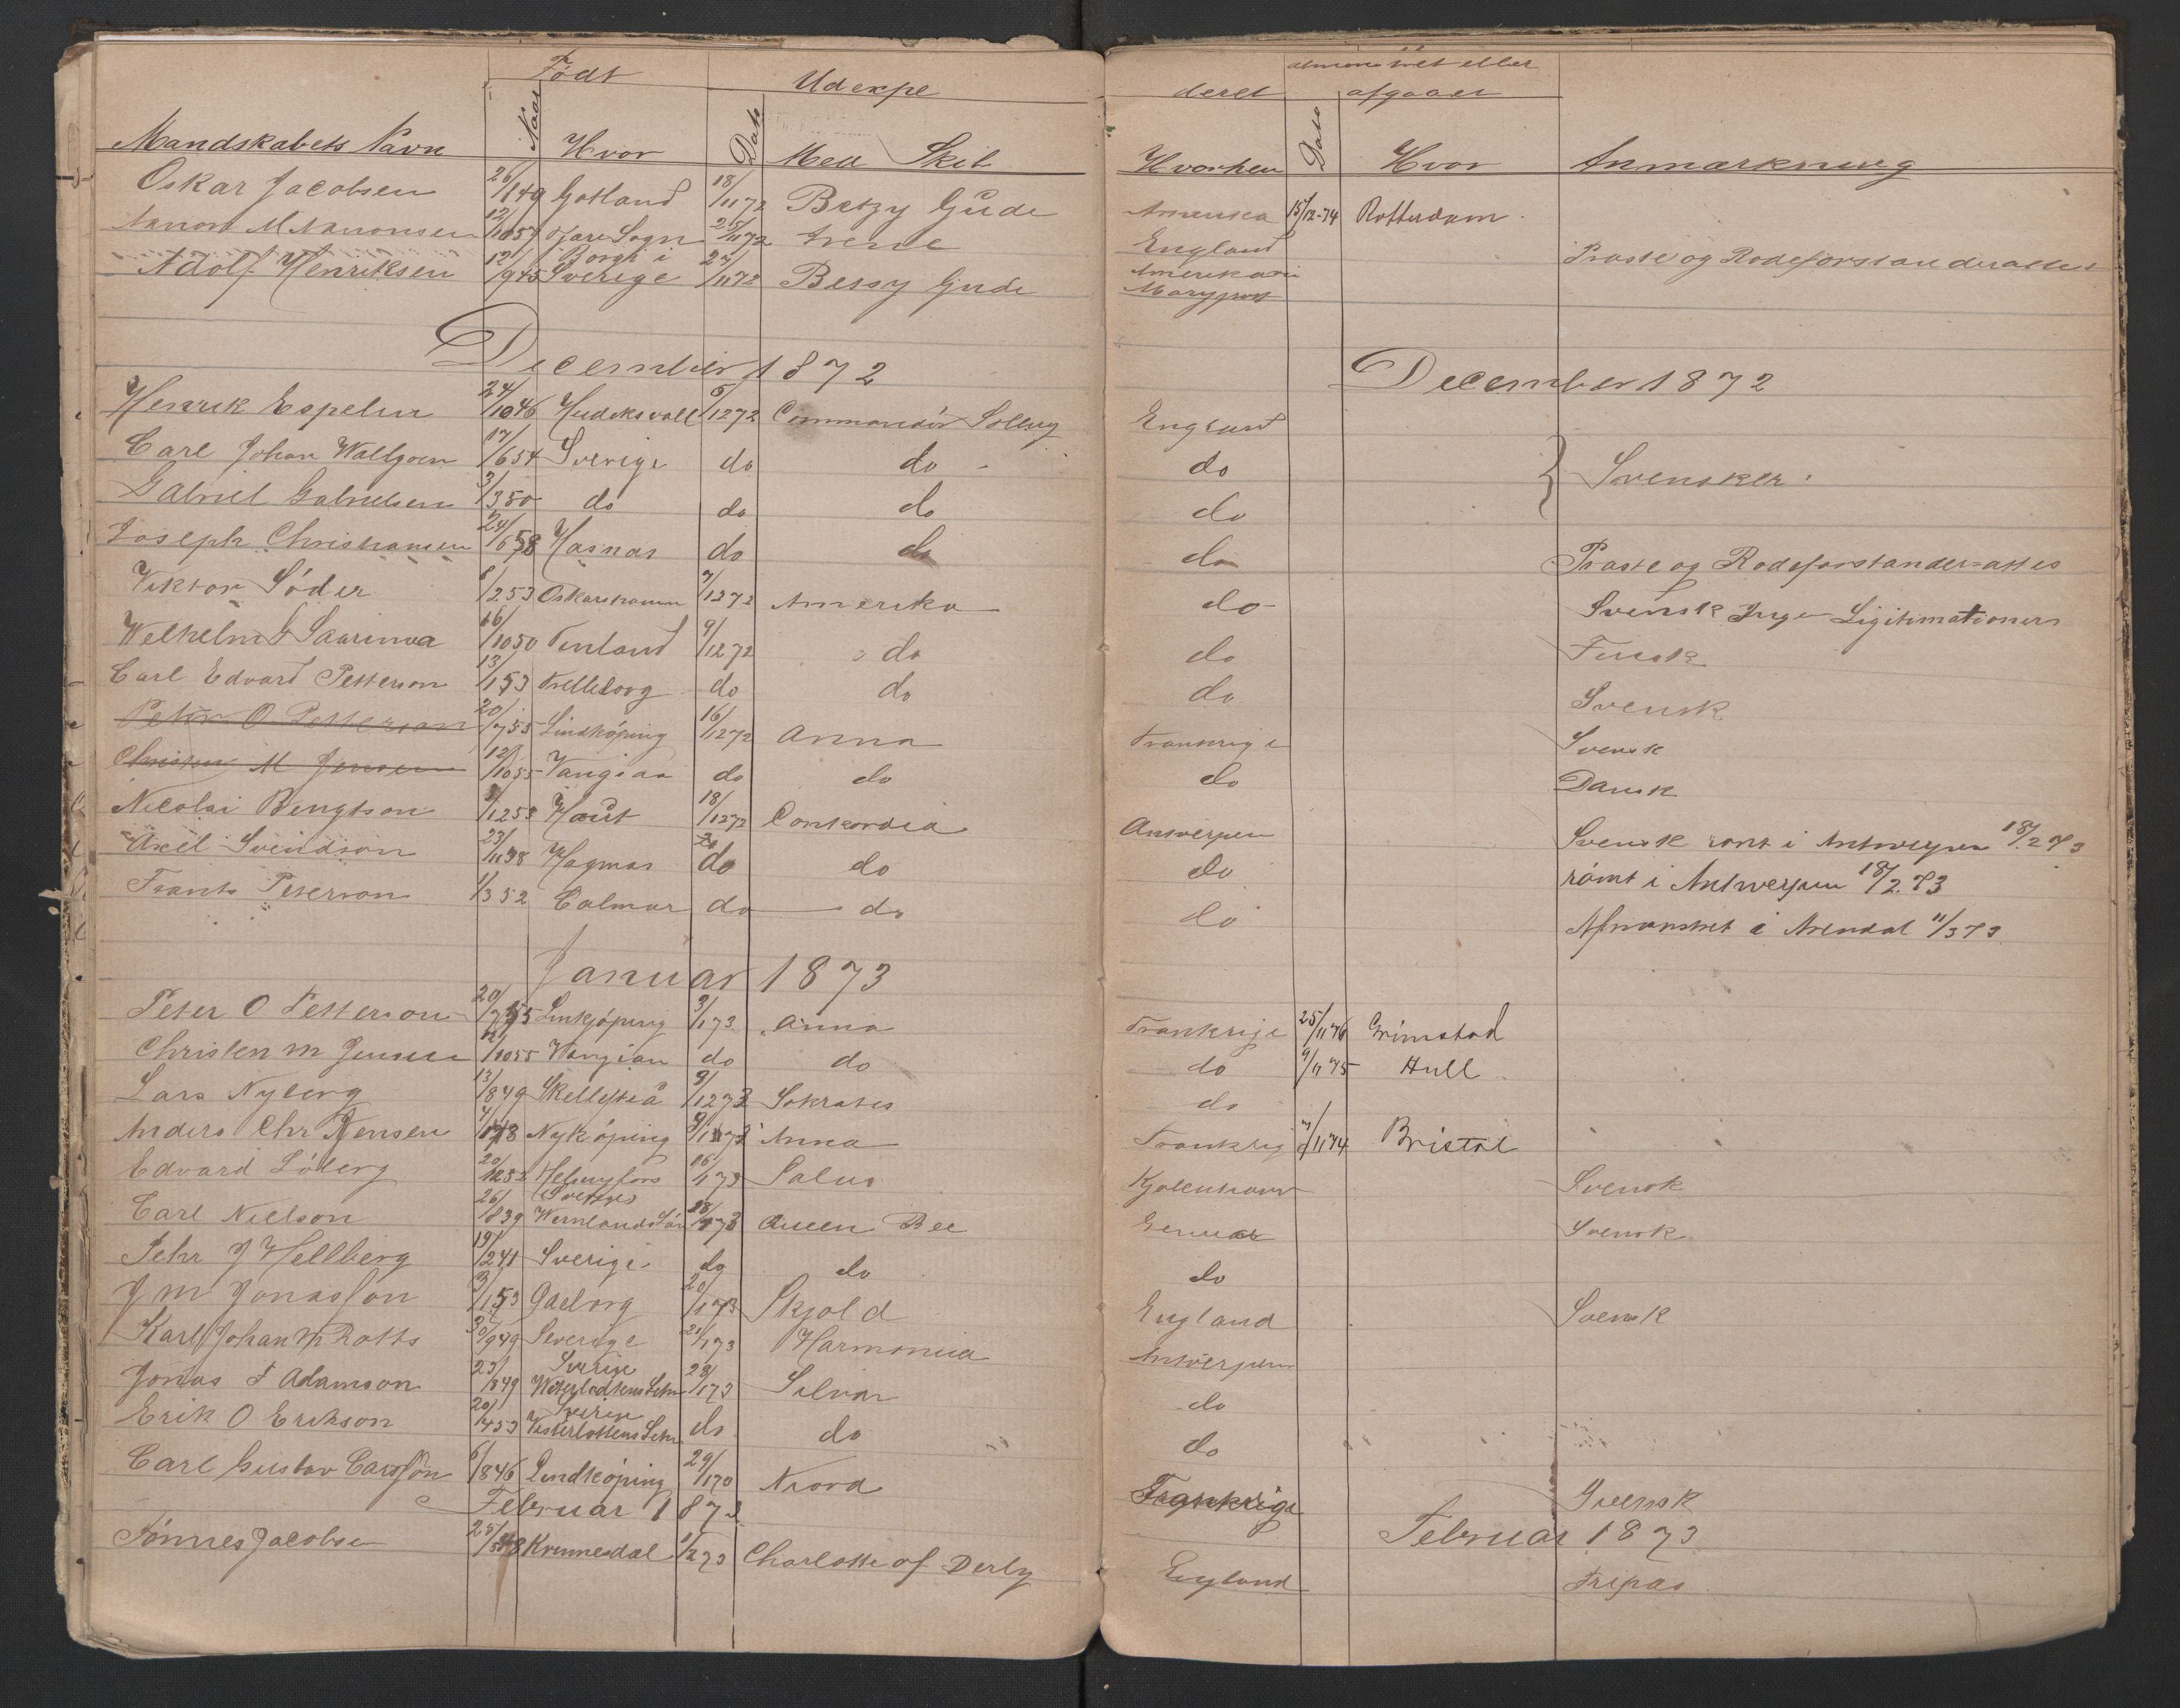 Født Udexpe deret afmønstret eller afgaaet
Mandskabets Navn Naar Hvor Dato Med Skib Hvorhen Dato Hvor Anmærkning
Oskar Jacobsen 26/1 49 Gotland 18/11 72 Betzy Gude Amerika 15/12-74 Rotterdam
Aanon M Aanonsen 12/10 57 Sogn 11 72 Irene England
Adolf Henriksen 12/9 45 Borgh i Sverige 11 72 Bessy Gude Amerika Maryport Præste og Rodeforstanderattest
December 1872 December 1872
Henrik Espelin 24/10 46 Hudiksvall 6/12 72 Commandør Solling England
Carl Johan Wallgren 17/6 54 Sverige do do do } Svensker
Gabriel Gabrielsen 3/3 50 do do do do
Joseph Christiansen 24/6 58 Høsnæs do do do Præste og Rodeforstander-attes
Viktor Söder 8/2 53 Oskarshamn 7/12 72 Amerika do Svensk Inge Ligitimationers
Welhelm Saarinva 16/10 50 Finland 9/12 72 do do Finsk
Carl Edvard Petterson 13/1 53 Trelleborg do do do Svensk
Peter O Petterson 20/7 55 Lindköping 16/12 72 Anna Frankrige Svensk
Christen M Jensen 12/10 55 Vangsaa do do do Dansk
Nicolai Bengtson 3/12 53 18/12 72 Concordia Antwerpen Svensk rømt i Antwerpen 18/2 73
Axel Svendson 23/11 38 Hagmar do do do rømt i Antwerpen 18/2 73
Frants Peterson 1/3 52 Calmar do do do Afmønstret i Arendal 11/3 73
Januar 1873
Peter O Petterson 20/7 55 Linkjöping 3/1 73 Anna Frankrige 25/11 76 Grimstad
Christen M Jensen 12/10 55 Vangsaa do do do 9/11 75 Hull
Lars Nyberg 13/8 49 Skellefteå 9/12 73 Sokrates do
Anders Chr Jensen 4/1 48 Nyköping 9/1 73 Anna Frankrig 7/11 74 Bristol
Edvard Löberg 20/12 52 Helsingfors 16/1 73 Salus Kjøbenhavn Svensk
Carl Nielson 26/8 39 Sverige Wermlands Län 18/1 73 Queen Bee Genua Svensk
Pehr J Hellberg 19/2 41 Sverige do do do
J M Jonasson 3/1 53 Gøeborg 20/1 73 Skjold England Svensk
Karl Johan M Rotts 30/9 49 Sverige 21/1 73 Harmonia Antwerpen
Jonas F Adamson 23/8 49 Sverige Westerbottens Lehn 23/1 73 Silvia do
Erik O Erikson 20/4 53 Sverige Vesterbottens Lehn do do do
Carl Gustav Carlsson 6/8 46 Lindköping 29/1 70 Niord Frankrige Svensk
Februar 1873 Februar 1873
Tønnes Jacobsen 25/5 48 Kvinnesdal 1/2 73 Charlotte of Derby England Fripas